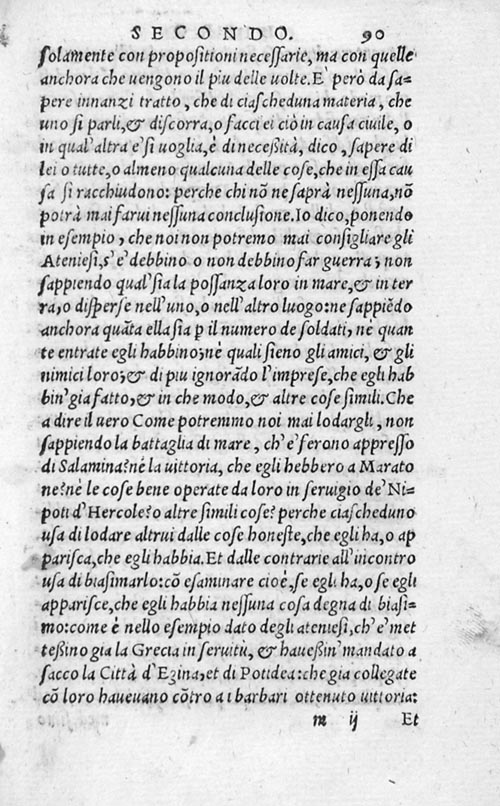 SECONDO. 90
ſolamente con propoſitioni neceſſarie, ma con quelle
anchora che uengono il piu delle uolte. E' però da ſa=
pere innanzi tratto, che di ciaſcheduna materia, che
uno ſi parli, & diſcorra, o facci ei ciò in cauſa ciuile, o
in qual'altra e' ſi uoglia, è di neceßità, dico, ſapere di
lei o tutte, o almeno qualcuna delle coſe, che in eſſa cau
ſa ſi racchiudono: perche chi nõ ne ſaprà neſſuna, nõ
potrà mai farui neſſuna concluſione. Io dico, ponendo
in eſempio, che noi non potremo mai conſigliare gli
Atenieſi, s'e' debbino o non debbino far guerra; non
ſappiendo qual'ſia la poſſanza loro in mare, & in ter
ra, o diſperſe nell'uno, o nell'altro luogo: ne ſappiẽdo
anchora quãta ella ſia p il numero de ſoldati, nè quan
te entrate egli habbino; nè quali ſieno gli amici, & gli
nimici loro; & di piu ignorãdo l'impreſe, che egli hab
bin' gia fatto, & in che modo, & altre coſe ſimili. Che
a dire il uero Come potremmo noi mai lodargli, non
ſappiendo la battaglia di mare, ch'e' ferono appreſſo
di Salamina? nè la uittoria, che egli hebbero a Marato
ne? nè le coſe bene operate da loro in ſeruigio de' Ni=
poti d'Hercole? o altre ſimili coſe? perche ciaſcheduno
uſa di lodare altrui dalle coſe honeſte, che egli ha, o ap
pariſca, che egli habbia. Et dalle contrarie all'incontro
uſa di biaſimarlo: cõ eſaminare cioè, ſe egli ha, o ſe egli
appariſce, che egli habbia neſſuna coſa degna di biaſi=
mo: come è nello eſempio dato degli atenieſi, ch'e' met
teßino gia la Grecia in ſeruitù, & haueßin' mandato a
ſacco la Città d'Egina, et di Potidea: che gia collegate
cõ loro haueuano cõtro a i barbari ottenuto uittoria:
m ij Et